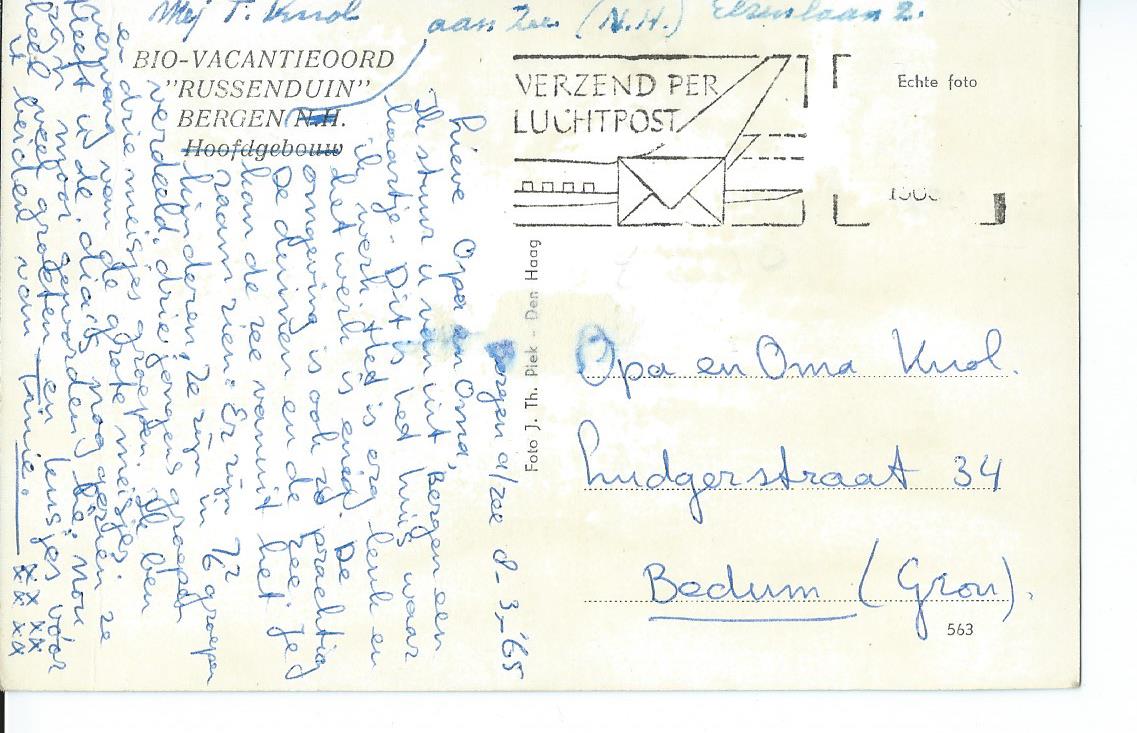 Mej T. Knol
aan Zee (N.H.) Elzenlaan 2.
BIO-VACANTIEOORD
"RUSSENDUIN"
BERGEN N.H.
Hoofdgebouw
VERZEND PER
LUCHTPOST
Echte foto
Bergen a/zee 8-3-'65
Lieve Opa en Oma,
Ik stuur u vanuit Bergen een
kaartje. Dit is het huis waar
ik werk. Het is erg leuk en
het werk is enig. De
omgeving is ook zo prachtig
De duinen en de zee. Je
kan de zee vanuit het
raam zien. Er zijn 72
kinderen. Ze zijn in 6 groepen
verdeeld, drie jongens groepen
en drie meisjes groepen. Ik ben
vervang van de grote meisjes.
Heeft u de dia's nog gezien ze
zijn mooi geworden hè. Nou
heel veel groeten en kusjes voor
u beiden van Tunie.
xx xx
xx xx
Foto J. Th. Piek - Den Haag
Opa en Oma Knol.
Ludgerstraat 34
Bedum (Gron).
563